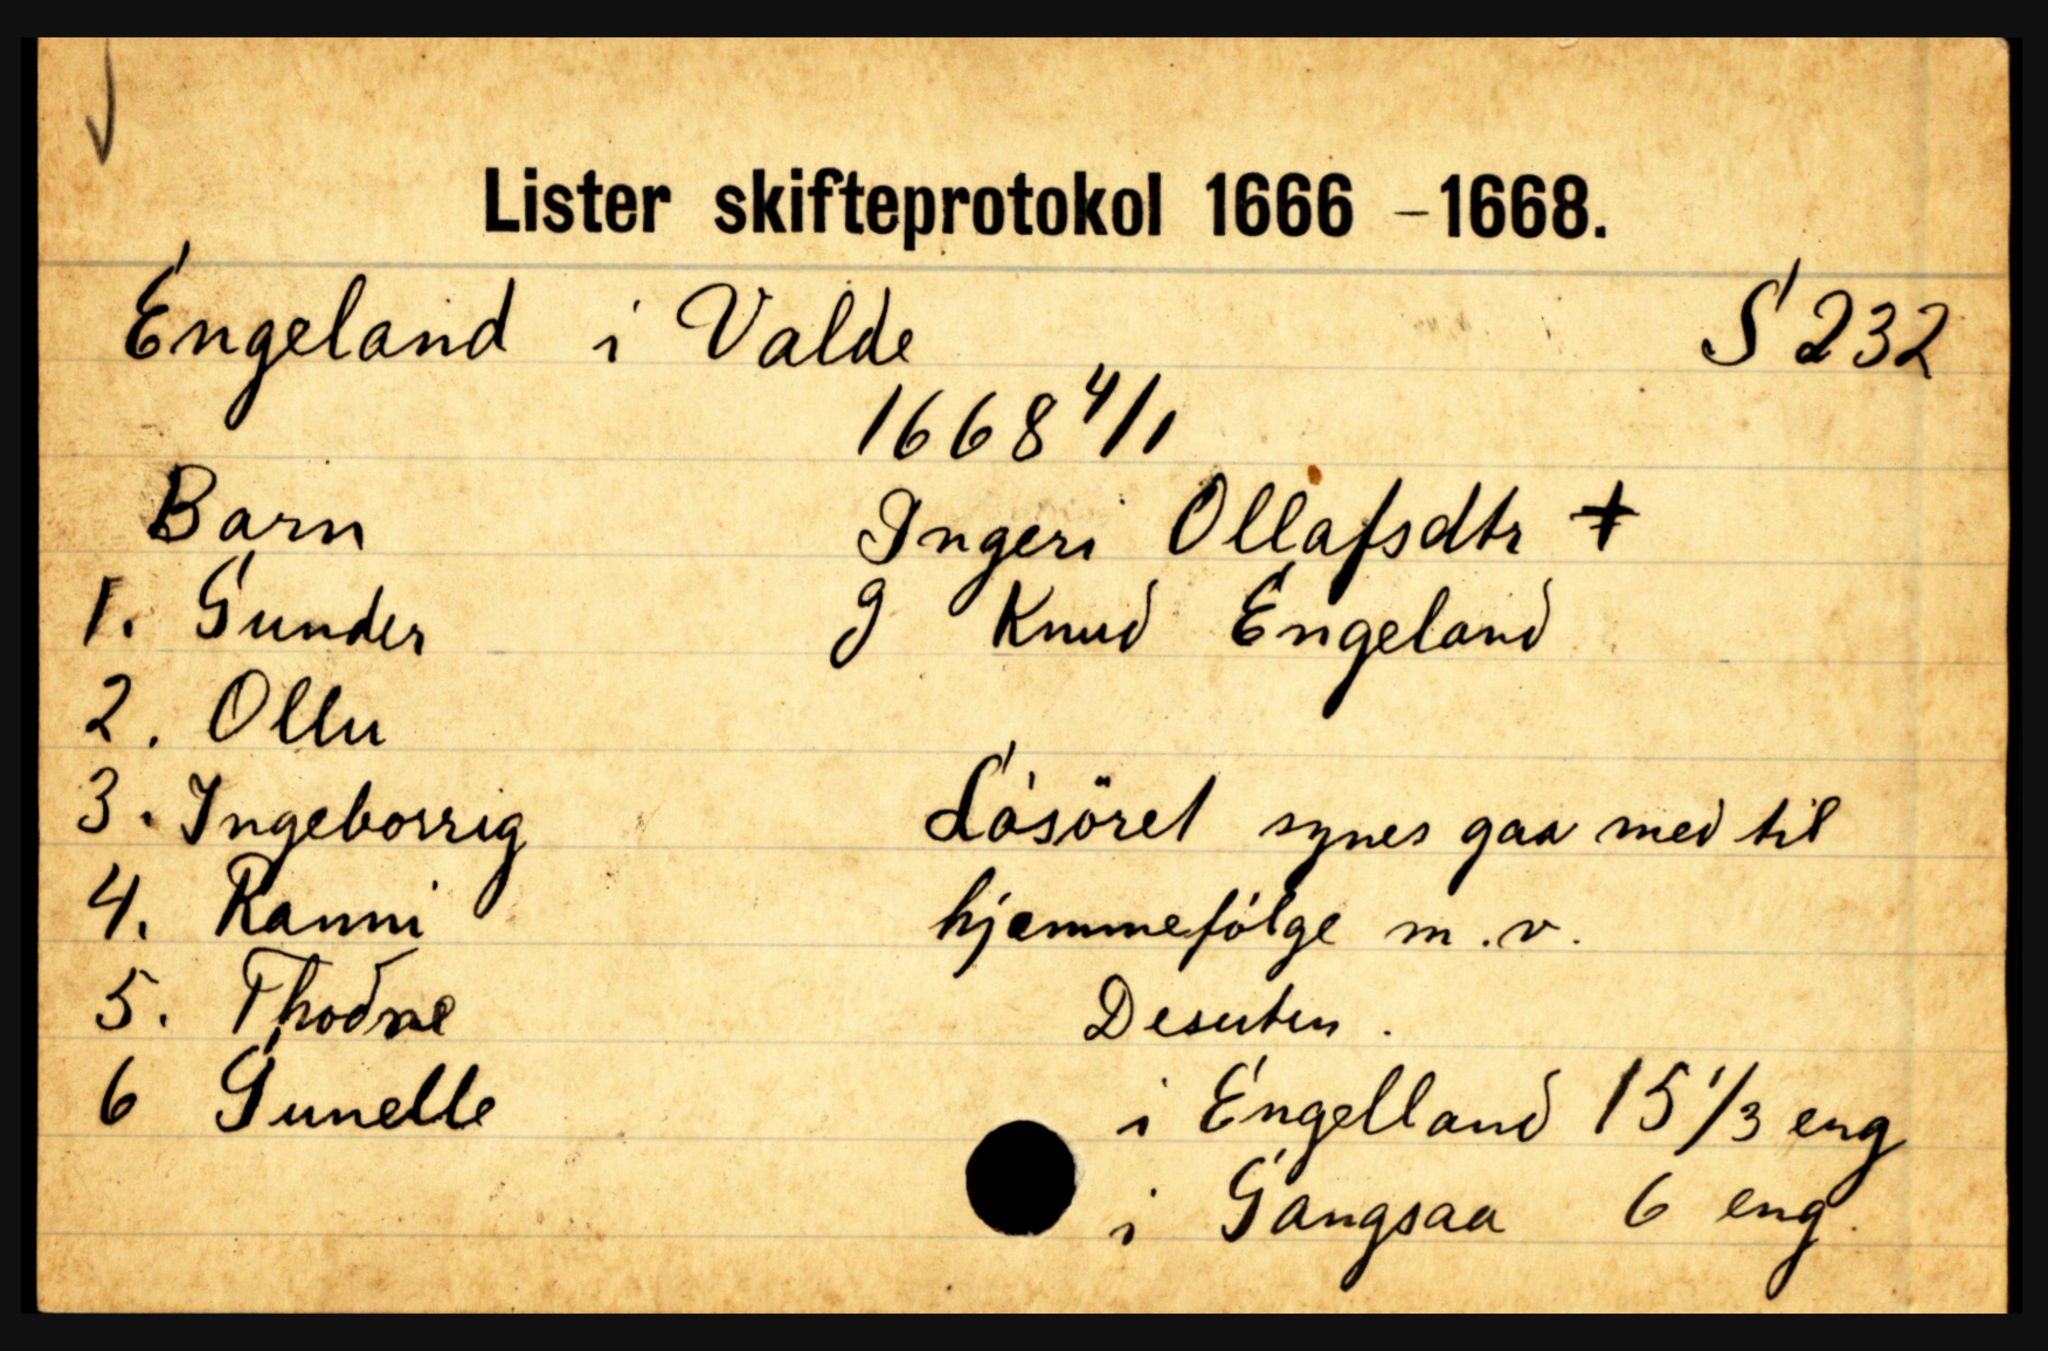 Lister skifteprotokol 1666 – 1668.
Engeland i Valde S 232
1668 4/1
Barn Ingeri Ollafsdtr +
1. Gunder g Knud Engeland
2. Ollu
3. Ingeborrig Lósöret synes gaa med til
4. Ranni hjemmefólge m.v.
5. Thodne Desuten.
6 Gunelle i Engelland 15 1/3 eng
i Gangsaa 6 eng.